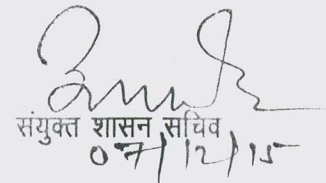 संयुक्त शासन सचिव
07/12/15